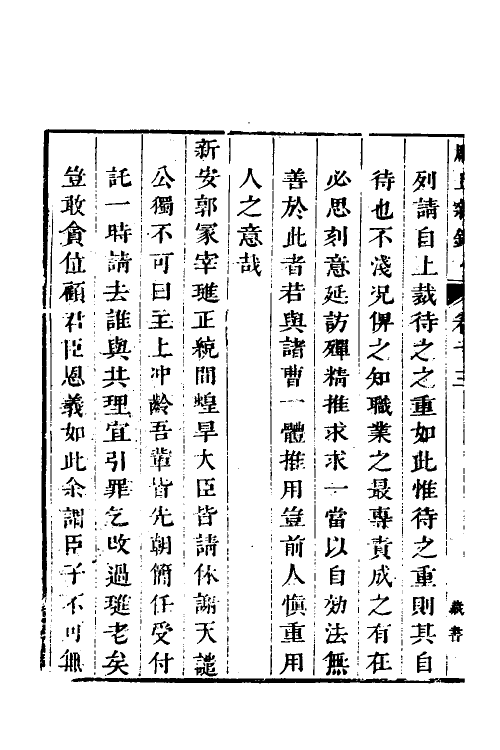 列請自上裁待之之重如此惟待之重則其自
待也不淺况俾之知職業之最專責成之有在
必思刻意延訪殫精推求求一當以自効法無
善於此者若與諸曹一體推用豈前人慎重用
人之意哉
新安郭冢宰璡正統間蝗旱大臣皆請休謝天譴
公獨不可曰主上冲齡吾輩皆先朝簡任受付
託一時請去誰與共理宜引罪乞改過璡老矣
豈敢貪位顧君臣恩義如此余謂臣子不可無
卷十三